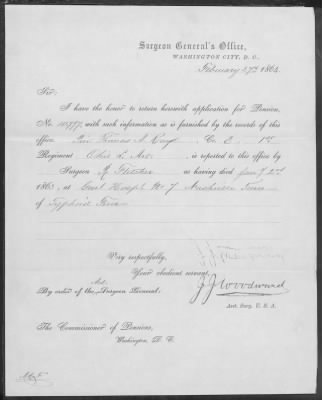 Surgeon General's Office,
WASHINGTON CITY, D. C.
February 27th 1864.
Sir:
I have the honor to return herewith application for Pension,
No. with such information as is furnished by the records of this
office. Thomas A. Co. C 1st
Regiment Ohio L. Art. is reported to this office by
Surgeon R. Fletcher as having died Jan'y 2d
1863, at Genl Hospl No 7 Nashville Tenn
of Typhoid Fever
Very respectfully,
Your obedient servant,
By order of the Act. Surgeon General:
J.J. Woodward
Asst. Surg. U. S. A.
The Commissioner of Pensions,
Washington, D. C.